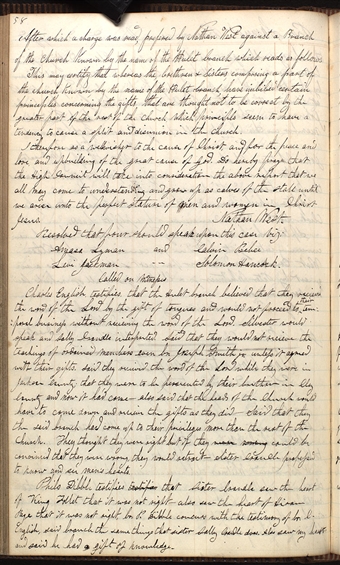 58
After which a charge was read, prepared by Nathan West against a Branch
of the Church known by the name of the Hulet branch which reads as follows
This may certify that whereas the brethren & sisters composing a part of
the church known by the name of the Hulet branch have imbibed certain
principles concerning the gifts, that are thought not to be correct by the
greater part of the rest of the church which principles seem to have a
tendency to cause a split and disunion in the church.
I therefore as a wellwisher to the cause of Christ and for the peace and
love and upbuilding of the great cause of God. Do hereby pray that
the High Council will take into consideration the above report that we
all may come to understanding and grow up as calves of the stall until
we arive unto the perfect stature of men and women in Christ
Jesus. Nathan West.
Resolved that four should speak upon this case viz:
Amasa Lyman and Calvin Beebe
Levi Jackman -- Solomon Hancock.
Called on Witnesses
Charles English testifies, that the Hulet branch believed that they received
the word of the Lord by the gift of tongues and would not proceed to their tem-
poral buisness without receiving the word of the Lord. Sylvester would
speak and Sally Crandle interpreted. Said that they would not receive the
teachings of ordained members even br Joseph Smith jr unless it agreed
with their gifts. said they received the word of the Lord while they were in
Jackson County, that they were to be persecuted by their brethren in Clay
County and now it had come. also said that the heads of the Church would
have to come down and receive the gifts as they did. Said that they
the said branch had come up to their privileges more than the rest of the
Church. They thought they were right but if they could be
convinced that they were wrong they would retract. sister Crandle professed
to know and see mens hearts.
Philo Dibble testifies that sister Crandle saw the heart
of King Follet that it was not right. also saw the heart of Hiram
Page that it was not right. br P. Dibble concurs with the testimony of br C.
English, said branch the same things that sister Sally does. also saw my heart
and said he had a gift of knowledge.